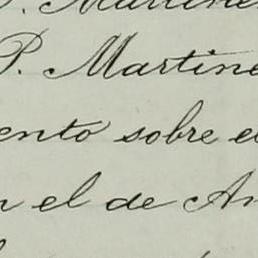 P. Martine
P. Martine
ento sobre e
n el de An